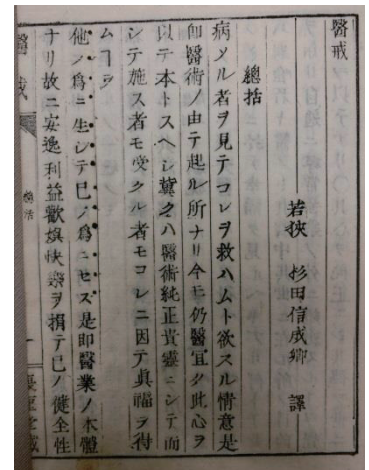 醫戒
若狹　杉田信成卿　譯
總括
病メル者ヲ見テコレヲ救ハムト欲スル情意是
卽醫術ノ由テ起ル所ナリ今モ仍醫宜ク此心ヲ
以テ本トスヘシ冀クハ醫術純正貴靈ニシテ而
シテ施ス者モ受クル者モコレニ因テ眞福ヲ得
ムヿヲ
他ノ爲ニ生シテ己ノ爲ニセズ是卽醫業ノ本體
ナリ故ニ安逸利益歡娯快樂ヲ捐テ己ノ健全性
醫戒
總括